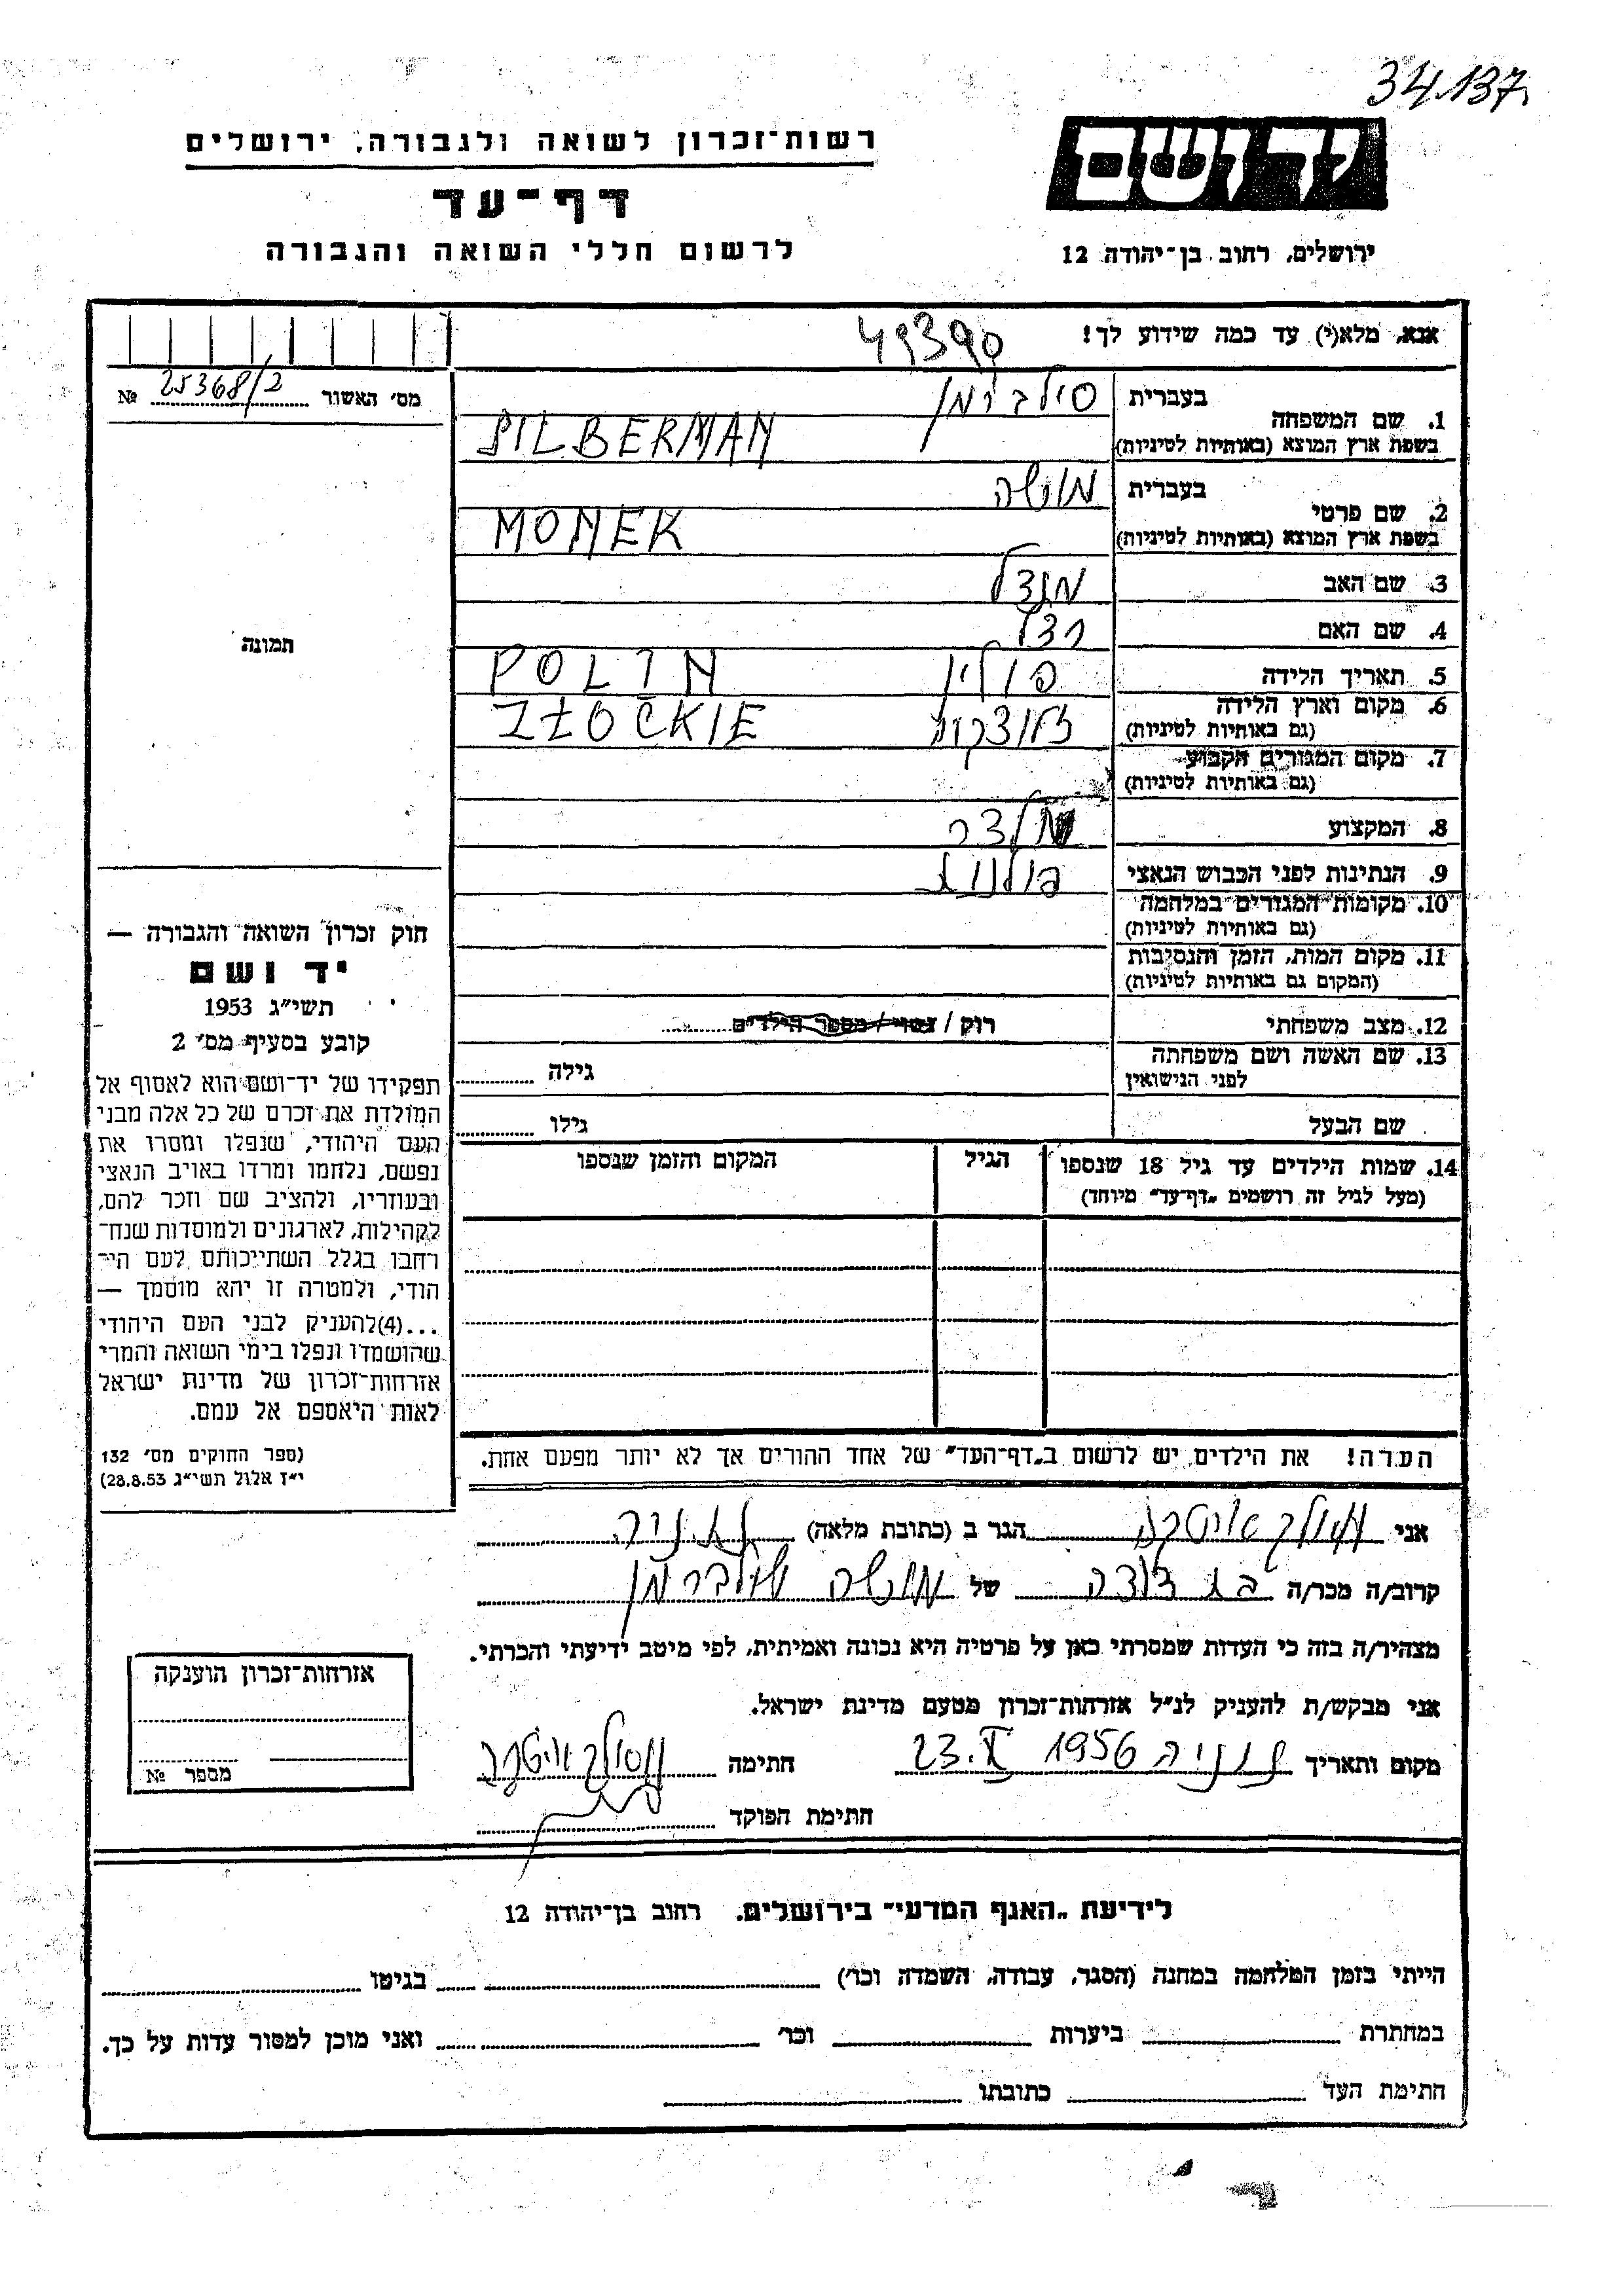 34.137
רשות־זכרון לשואה ולגבורה, ירושלים
יד ושם
דף־עד
לרשום חללי השואה והגבורה
ירושלים, רחוב בן־יהודה 12
אנא, מלא(י) עד כמה שידוע לך!
49390
מס׳ האשור 25368/2 №
תמונה
1. שם המשפחה
בעברית
בשפת ארץ המוצא (באותיות לטיניות)
SILBERMAN
2. שם פרטי
בעברית משה
בשפת ארץ המוצא (באותיות לטיניות)
MONEK
3. שם האב מנדל
4. שם האם
5. תאריך הלידה פולין POLIN
6. מקום וארץ הלידה
(גם באותיות לטיניות)
ZŁOCKIE
7. מקום המגורים הקבוע
(גם באותיות לטיניות)
8. המקצוע
9. הנתינות לפני הכבוש הנאצי פולנית
10. מקומות המגורים במלחמה
(גם באותיות לטיניות)
11. מקום המות, הזמן והנסיבות
(המקום גם באותיות לטיניות)
12. מצב משפחתי רוק / נשוי / מספר הילדים
13. שם האשה ושם משפחתה
לפני הנישואין
גילה
שם הבעל
גילו
14. שמות הילדים עד גיל 18 שנספו
(מעל לגיל זה רושמים „דף־עד״ מיוחד)
הגיל
המקום והזמן שנספו
חוק זכרון השואה והגבורה —
יד ושם
תשי״ג 1953
קובע בסעיף מס׳ 2
תפקידו של יד־ושם הוא לאסוף אל
המולדת את זכרם של כל אלה מבני
העם היהודי, שנפלו ומסרו את
נפשם, נלחמו ומרדו באויב הנאצי
ובעוזריו, ולהציב שם וזכר להם,
לקהילות, לארגונים ולמוסדות שנח־
רחבו בגלל השתייכותם לעם הי־
הודי, ולמטרה זו יהא מוסמך —
...(4)להעניק לבני העם היהודי
שהושמדו ונפלו בימי השואה והמרי
אזרחות־זכרון של מדינת ישראל
לאות היאספם אל עמם.
(ספר החוקים מס׳ 132
י״ז אלול תשי״ג 28.8.53)
הערה! את הילדים יש לרשום ב„דף־העד״ של אחד ההורים אך לא יותר מפעם אחת.
אני הגר ב (כתובת מלאה) נתניה
קרוב/ה מכר/ה בת דודה של משה זילברמן
מצהיר/ה בזה כי העדות שמסרתי כאן על פרטיה היא נכונה ואמיתית, לפי מיטב ידיעתי והכרתי.
אני מבקש/ת להעניק לנ״ל אזרחות־זכרון מטעם מדינת ישראל.
מקום ותאריך נתניה 23.X 1956 חתימה
חתימת הפוקד
אזרחות־זכרון הוענקה
מספר №
לידיעת „האגף המדעי״ בירושלים, רחוב בן־יהודה 12
הייתי בזמן המלחמה במחנה (הסגר, עבודה, השמדה וכו׳) בגיטו
במחתרת ביערות וכו׳ ואני מוכן למסור עדות על כך.
חתימת העד כתובתו